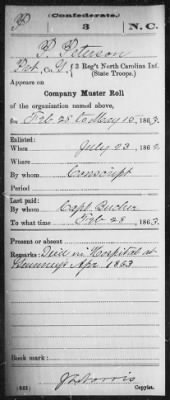 P
(Confederate.)
3
N.C.
P. Peterson
Pvt., Co. G, 3 Reg't North Carolina Inf.
(State Troops.)
Appears on
Company Muster Roll
of the organization named above,
for Feb 28 to May 10, 1863.
Enlisted:
When July 23, 186
Where
By whom Conscript
Period
Last paid:
By whom Capt.
To what time Feb 28, 1863.
Present or absent
Remarks: Died in Hospital at
Apr 1863
Book mark:
Copyist.